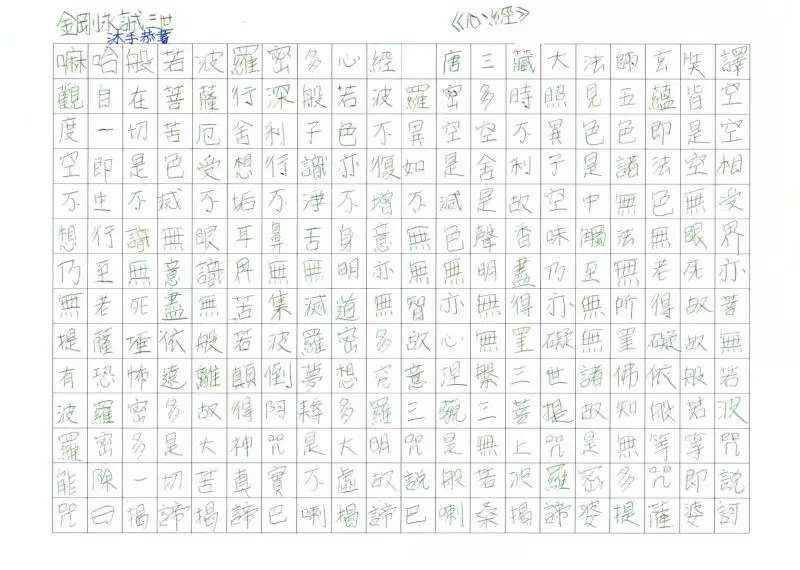 金剛 誠 《心經》
沐手恭書
嘛哈般若波羅密多心經 唐三藏大法師玄奘譯
觀自在菩薩行深般若波羅密多時照見五蘊皆空
度一切苦厄舍利子色不異空空不異色色即是空
空即是色受想行識亦復如是舍利子是諸法空相
不生不滅不垢不淨不增不減是故空中無色無受
想行識無眼耳鼻舌身意無色聲香味觸法無眼界
乃至無意識界無無明亦無無明盡乃至無老死亦
無老死盡無苦集滅道無智亦無得亦無所得故菩
提薩埵依般若波羅密多故心無罣礙無罣礙故無
有恐怖遠離顛倒夢想究意涅槃三世諸佛依般若
波羅密多故得阿耨多羅三藐三菩提故知般若波
羅密多是大神咒是大明咒是無上咒是無等等咒
能除一切苦真實不虛故說般若波羅密多咒即說
咒曰揭諦揭諦巴喇揭諦巴喇桑揭諦婆提薩婆訶